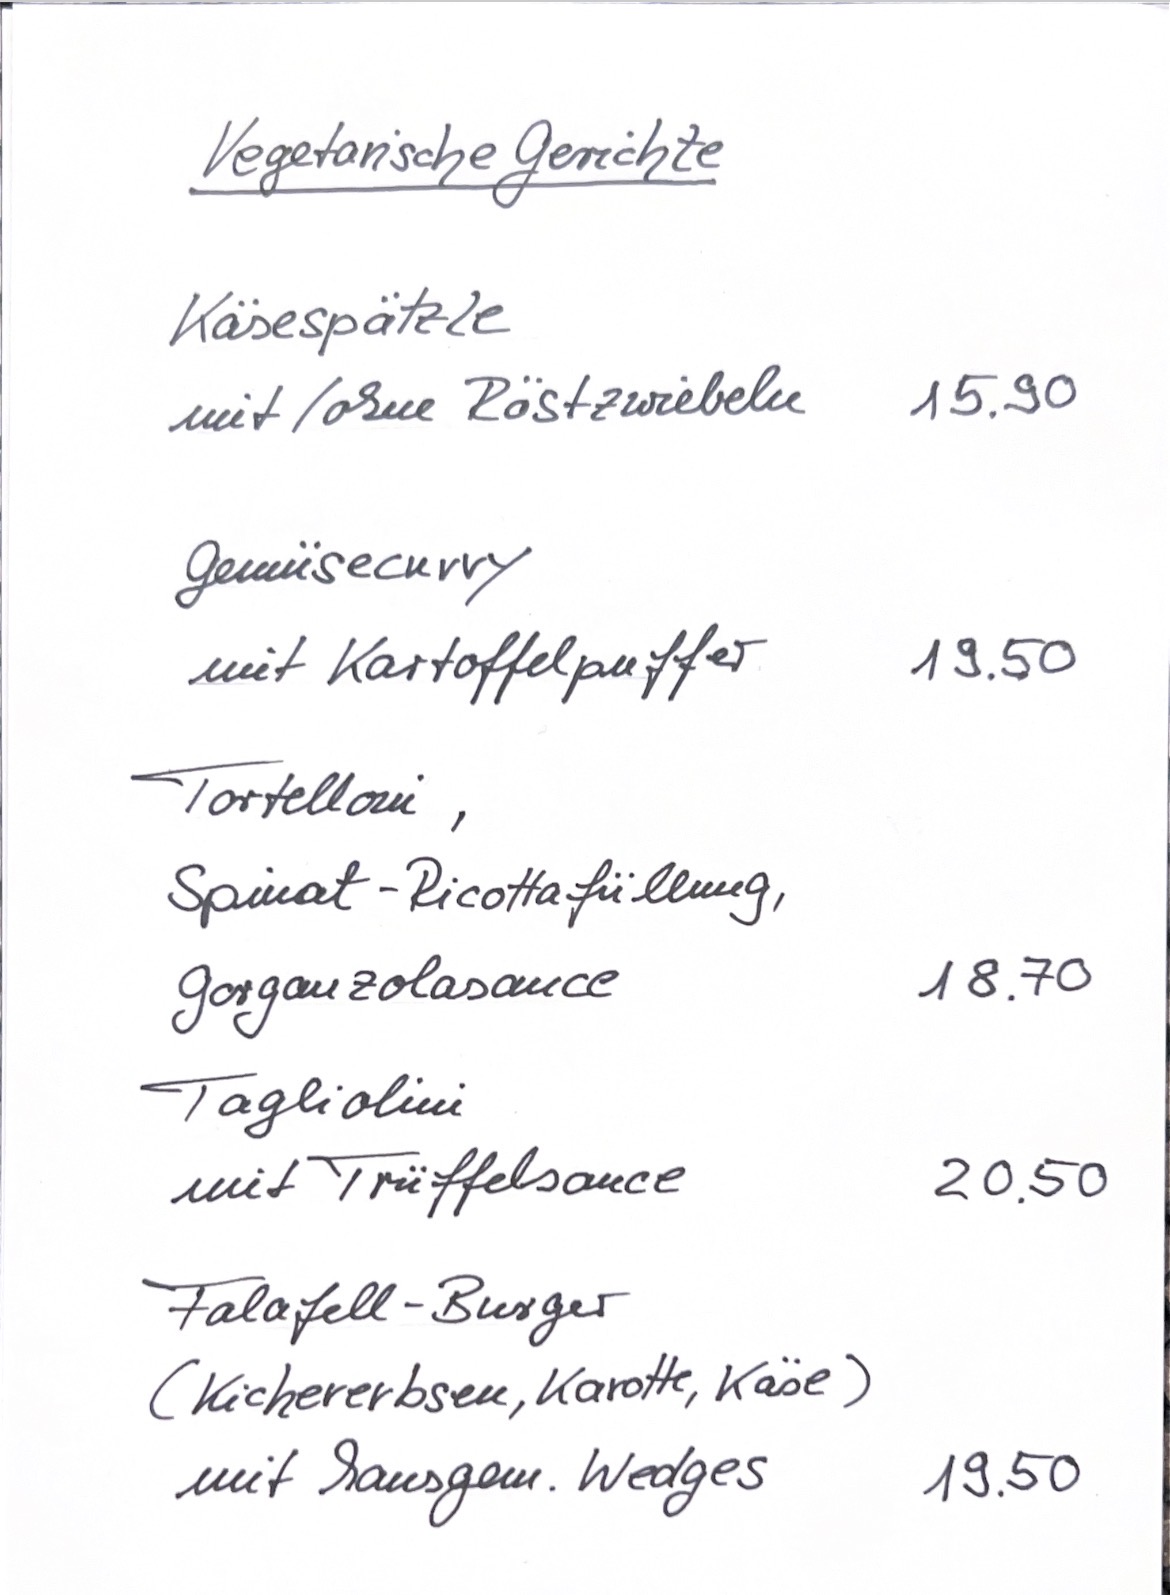 Vegetarische Gerichte
Käsespätzle
mit/ohne Röstzwiebeln 15.90
Gemüsecurry
mit Kartoffelpuffer 19.50
Tortelloni,
Spinat-Ricottafüllung,
Gorganzolasauce 18.70
Tagliolini
mit Trüffelsauce 20.50
Falafell-Burger
(Kichererbsen, Karotte, Käse)
mit hausgem. Wedges 19.50